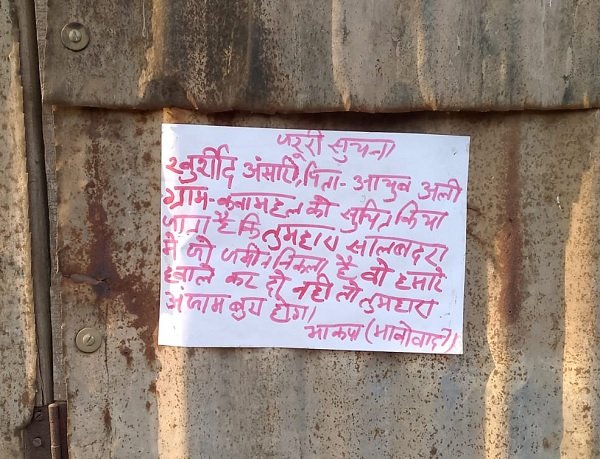 जरूरी सुचना
खुर्शीद अंसारी, पिता- आयुब अली
ग्राम- कनामहल को सुचित किया
जाता है कि तुमहारा सालबदरा
में जो जमीन निकला है वो हमारे
हवाले कर दो नही तो तुमहारा
अंजाम बुरा होगा।
भाकपा (माओवादी)